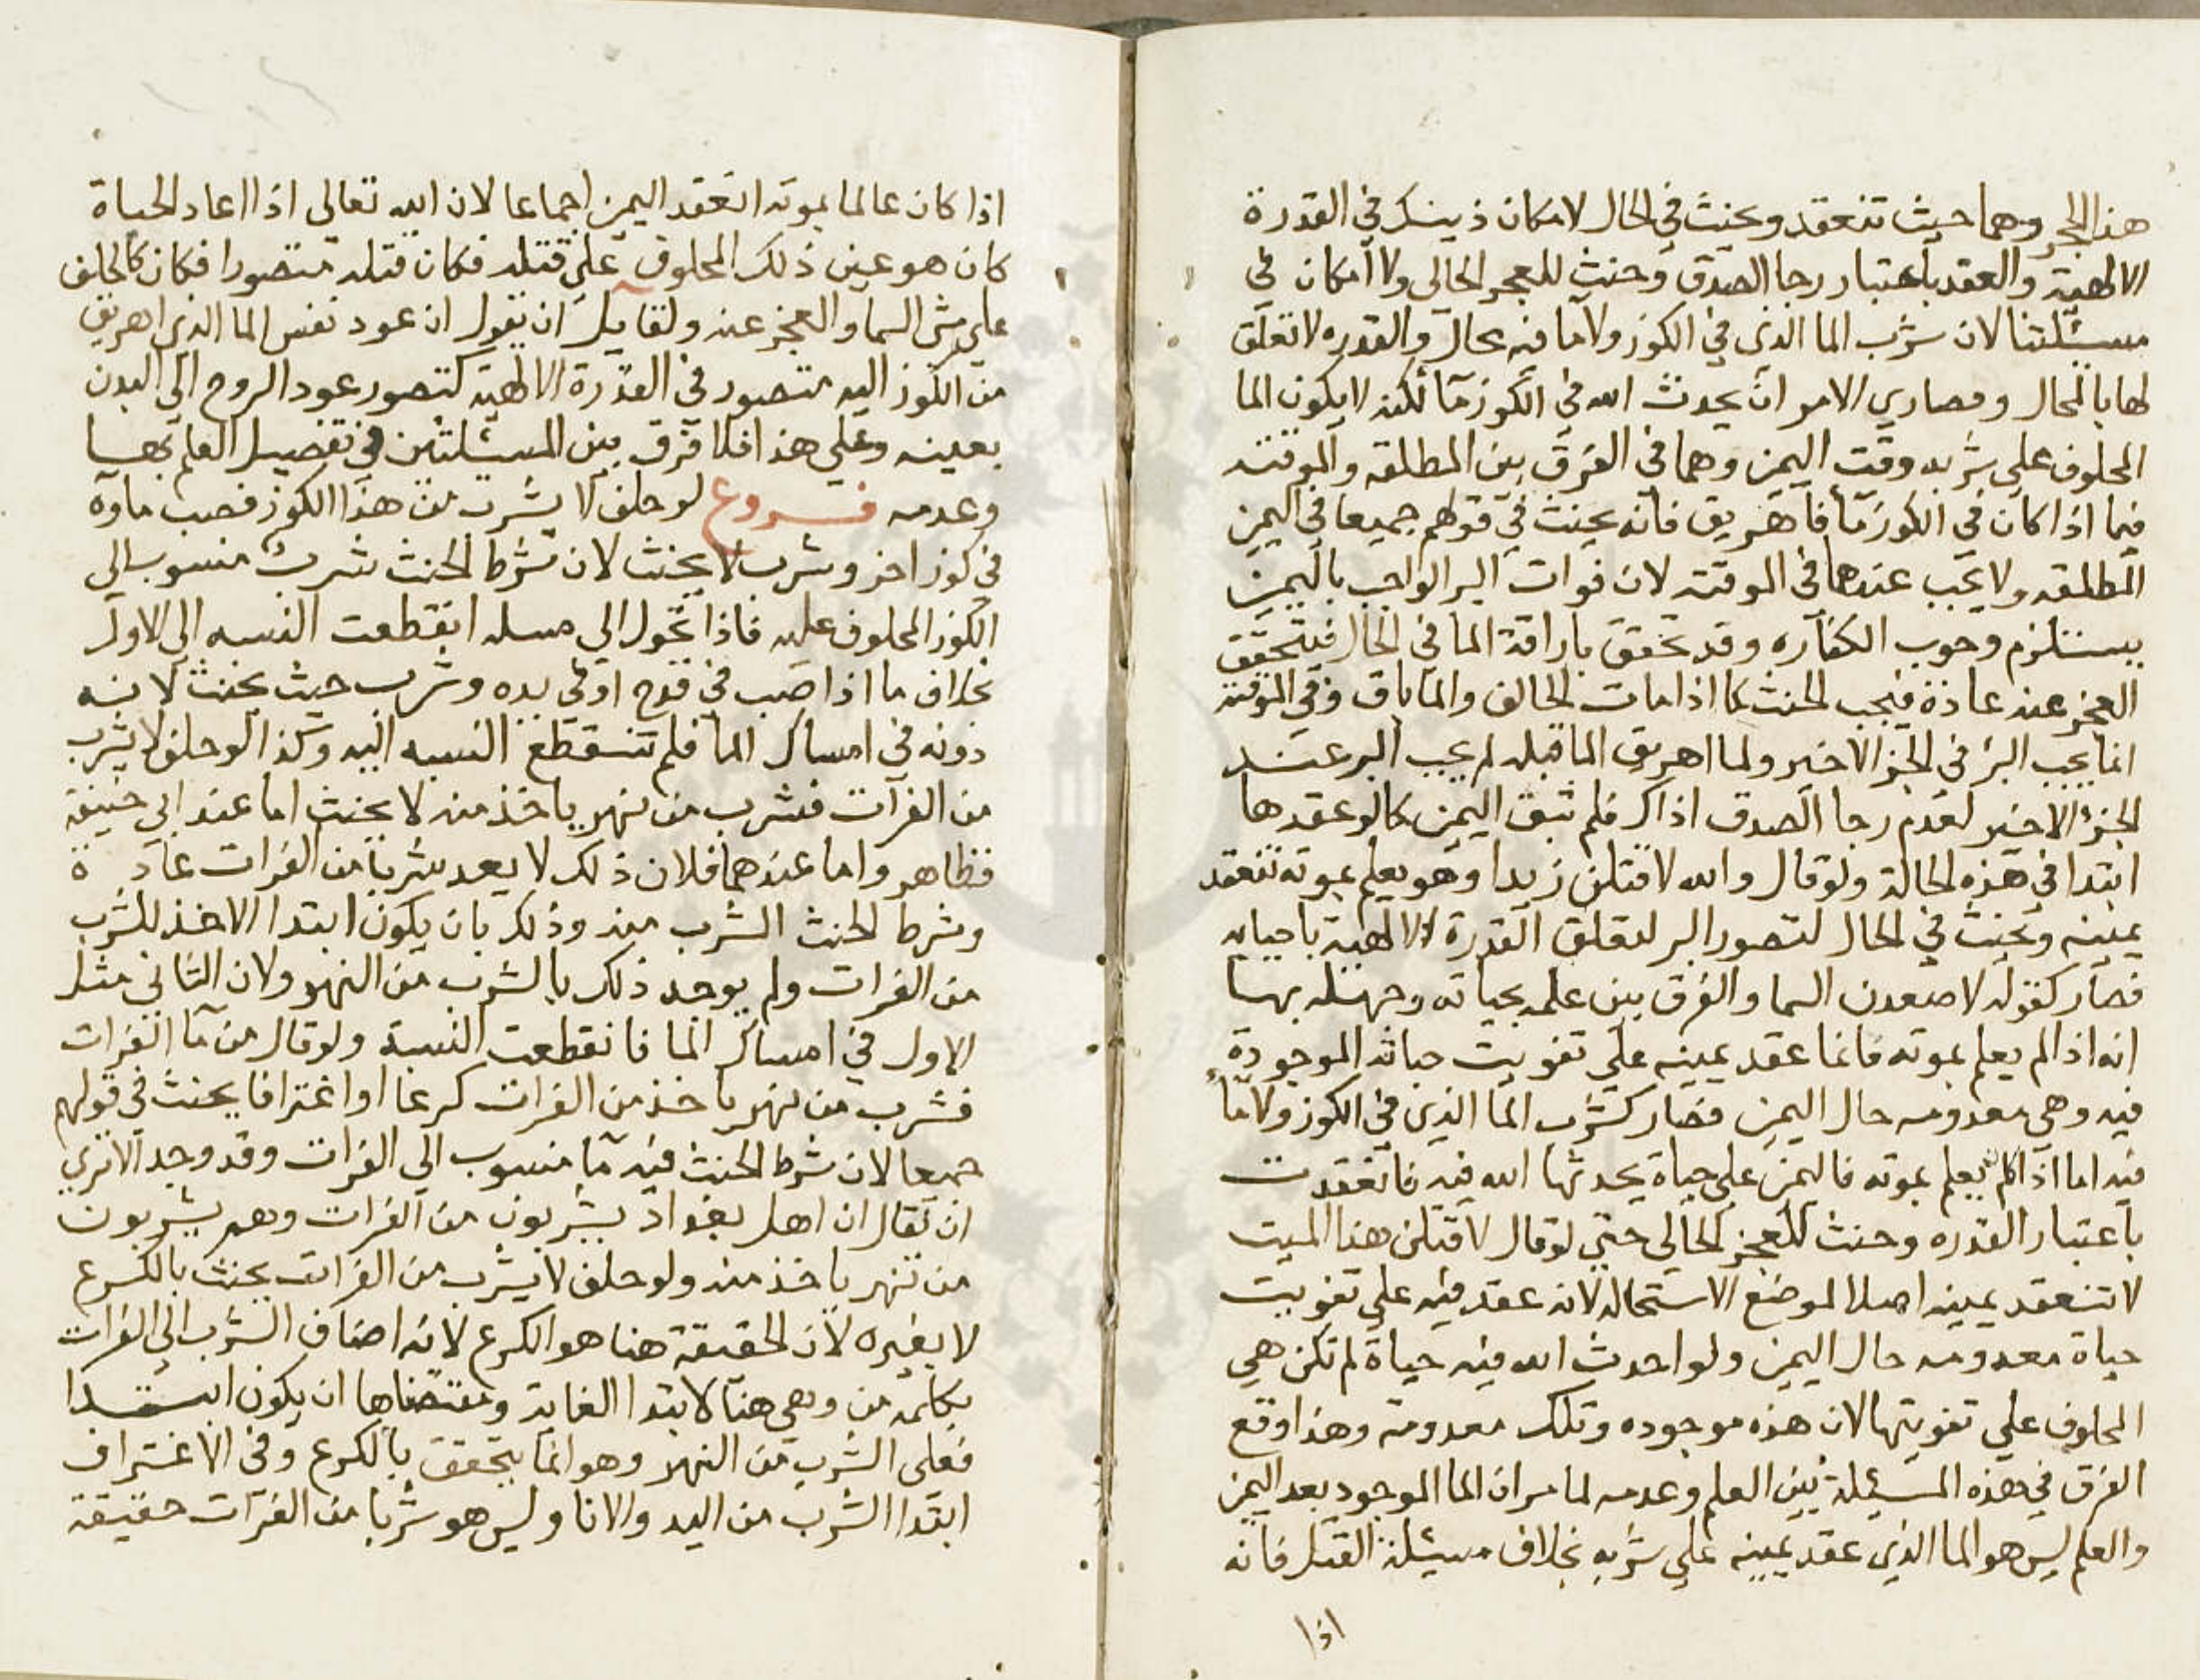 هذا الحجر وهما حيث تنعقد ويحنث في الحال لامكان ذينك في القدرة
الالهية والعقد باعتبار رجا الصدق وحنث للعجز الحالي ولا امكان في
مسئلتنا لان شرب الما الذي في الكوز ولا ما فيه محال والقدره لا تعلق
لها بالمحال وقصاري الامر ان يحدث الله في الكوز ما لكنه لا يكون الما
المحلوف علي شربه وقت اليمين وهما في الفرق بين المطلقه والموقته
فيما اذا كان في الكوز ما فاهريق فانه يحنث في قولهم جميعا في اليمين
المطلقه ولا يجب عندهما في الموقته لان فوات البر الواجب باليمين
يستلزم وجوب الكفاره وقد تحقق باراقة الما في الحال فيتحقق
العجز عنه عادة فيجب الحنث كما اذا مات الحالف والما باق وفي الموقته
انما يجب البر في الجز الاخير ولما اهريق الما قبله لم يجب البر عند
الجزء الاخير لعدم رجا الصدق اذ اك فلم تبق اليمين كما لو عقدها
ابتدا في هذه الحالة ولو قال والله لاقتلن زيدا وهو يعلم بموته تنعقد
يمينه ويحنث في الحال لتصور البر لتعلق القدرة الالهية باحيايه
فصار كقوله لاصعدن السما والفرق بين علمه بحياته وجهله بها
انه اذا لم يعلم بموته فانما عقد يمينه علي تفويت حياته الموجودة
فيه وهي معدومه حال اليمين فصار كشرب الما الذي في الكوز ولا ما
فيه اما اذا كان يعلم بموته فاليمين علي حياة يحدثها الله فيه فانعقدت
باعتبار القدره وحنث للعجز الحالي حتي لو قال لاقتلن هذا الميت
لا تنعقد يمينه اصلا لموضع الاستحاله لانه عقد فيه علي تفويت
حياة معدومه حال اليمين ولو احدث الله فيه حياة لم تكن هي
المحلوف علي تفويتها لان هذه موجوده وتلك معدومة وهذا وقع
الفرق في هذه المسئلة بين العلم وعدمه لما مر ان الما الموجود بعد اليمين
والعلم ليس هو الما الذي عقد يمينه علي شربه بخلاف مسئلة القتل فانه
اذا
اذا كان عالما بموته انعقد اليمين اجماعا لان الله تعالي اذا اعاد الحياة
كان هو عين ذلك المحلوف علي قتله فكان قتله متصورا فكان كالحلف
علي مس السما والعجز عنه ولقايل ان يقول ان عود نفس الما الذي اهريق
من الكوز اليه متصور في القدرة الالهية كتصور عود الروح الي البدن
بعينه وعلي هذا فلا فرق بين المسئلتين في تفصيل العلم بها
وعدمه فروع لو حلف لا يشرب من هذا الكوز فصب ماوه
في كوز اخر وشرب لا يحنث لان شرط الحنث شرب منسوب الي
الكوز المحلوف عليه فاذا تحول الي مثله انقطعت النسبه الي الاول
بخلاف ما اذا صب في قدح او في يده وشرب حيث يحنث لانه
دونه في امساك الما فلم تنقطع النسبه اليه وكذا لو حلف لا يشرب
من الفرات فشرب من نهر ياخذ منه لا يحنث اما عند ابي حنيفة
فظاهر واما عندهما فلان ذلك لا يعد شربا من الفرات عادة
وشرط الحنث الشرب منه وذلك بان يكون ابتدا الاخذ للشرب
من الفرات ولم يوجد ذلك بالشرب من النهر ولان الثاني مثل
الاول في امساك الما فانقطعت النسبة ولو قال من ما الفرات
فشرب من نهر ياخذ من الفرات كرعا او اغترافا يحنث في قولهم
جميعا لان شرط الحنث فيه ما منسوب الي الفرات وقد وجد الا تري
ان يقال ان اهل بغداد يشربون من الفرات وهم يشربون
من نهر ياخذ منه ولو حلف لا يشرب من الفرات يحنث بالكرع
لا بغيره لان الحقيقة هنا هو الكرع لانه اضاف الشرب الي الفرات
بكلمة من وهي هنا لابتدا الغاية ومقتضاها ان يكون ابتدا
فعلي الشرب من النهر وهو انما يتحقق بالكرع وفي الاغتراف
ابتدا الشرب من اليد والانا وليس هو شربا من الفرات حقيقة